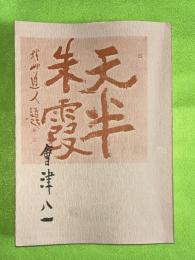 天半
朱霞
秋艸道人題
會津八一